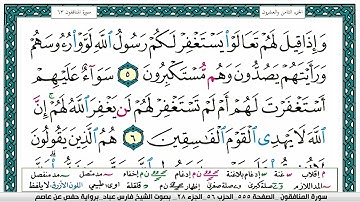 الجزء الثامن والعشرون
سورة المنافقون ٦٣
وَإِذَا قِيلَ لَهُمْ تَعَالَوْا۟ يَسْتَغْفِرْ لَكُمْ رَسُولُ ٱللَّهِ لَوَّوْا۟ رُءُوسَهُمْ
وَرَأَيْتَهُمْ يَصُدُّونَ وَهُم مُّسْتَكْبِرُونَ ٥ سَوَآءٌ عَلَيْهِمْ
أَسْتَغْفَرْتَ لَهُمْ أَمْ لَمْ تَسْتَغْفِرْ لَهُمْ لَن يَغْفِرَ ٱللَّهُ لَهُمْ إِنَّ
ٱللَّهَ لَا يَهْدِى ٱلْقَوْمَ ٱلْفَٰسِقِينَ ٦ هُمُ ٱلَّذِينَ يَقُولُونَ
سورة المنافقون - الصفحة ٥٥٥ الحزب ٥٦ الجزء ٢٨ - بصوت الشيخ فارس عباد برواية حفص عن عاصم